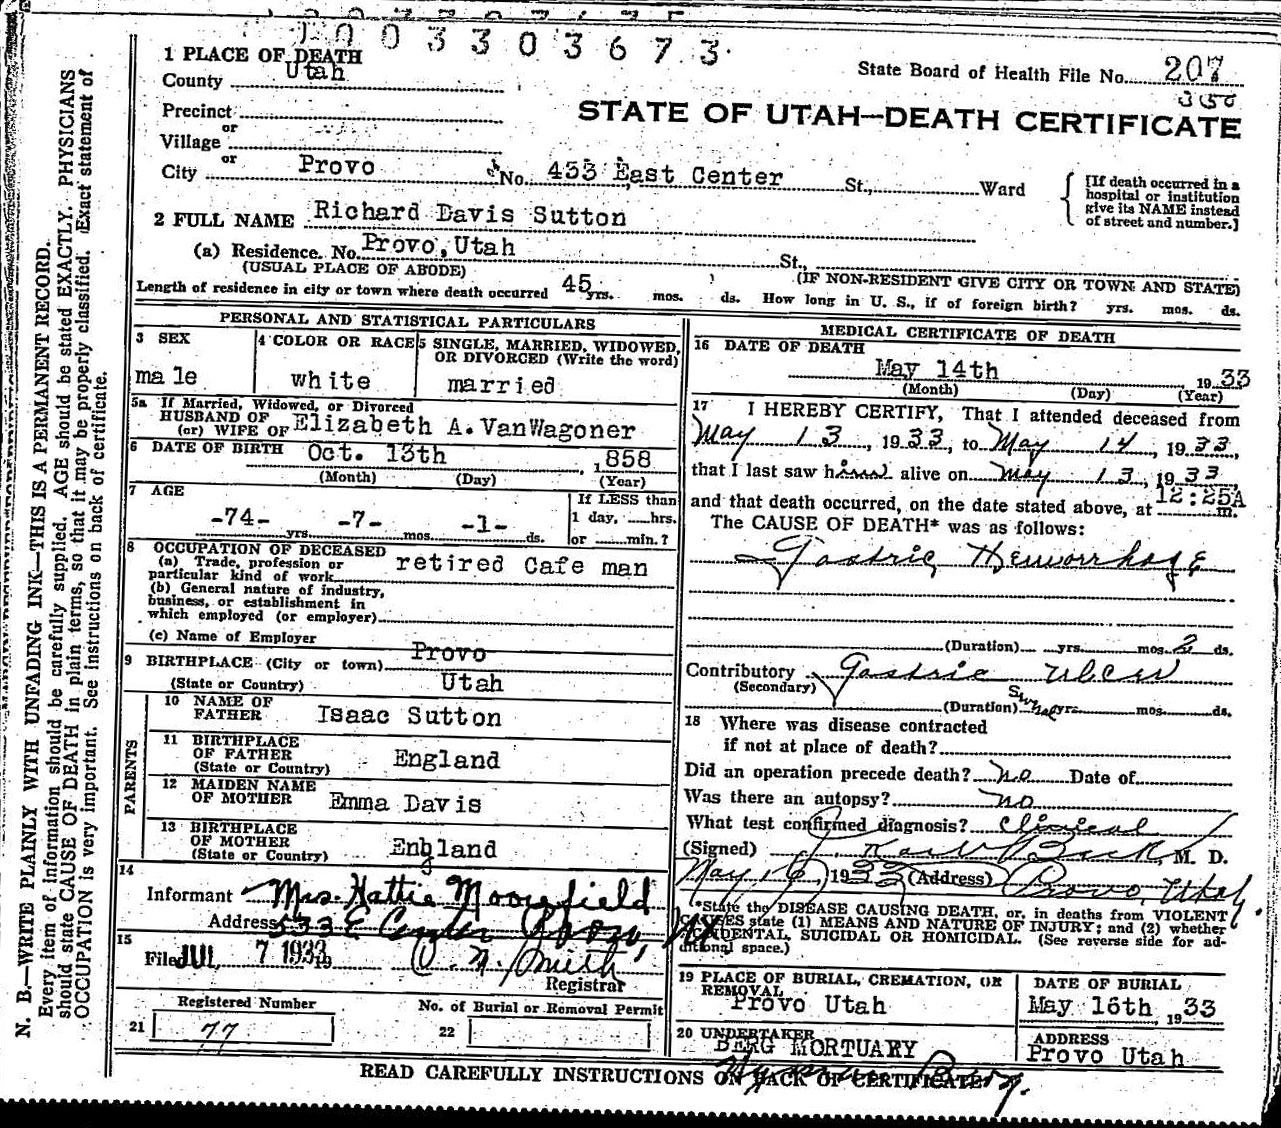 1003303673
1 PLACE OF DEATH
County Utah
State Board of Health File No. 207
350
Precinct
or
Village
or
City Provo No. 453 East Center St., Ward
STATE OF UTAH—DEATH CERTIFICATE
[If death occurred in a
hospital or institution
give its NAME instead
of street and number.]
2 FULL NAME Richard Davis Sutton
(a) Residence. No. Provo, Utah St.,
(USUAL PLACE OF ABODE) (IF NON-RESIDENT GIVE CITY OR TOWN AND STATE)
Length of residence in city or town where death occurred 45 yrs. mos. ds. How long in U. S., if of foreign birth? yrs. mos. ds.
PERSONAL AND STATISTICAL PARTICULARS
3 SEX
male
4 COLOR OR RACE
white
5 SINGLE, MARRIED, WIDOWED,
OR DIVORCED (Write the word)
married
5a If Married, Widowed, or Divorced
HUSBAND OF
(or) WIFE OF Elizabeth A. VanWagoner
6 DATE OF BIRTH Oct. 13th , 1858
(Month) (Day) (Year)
7 AGE
-74- yrs. -7- mos. -1- ds.
If LESS than
1 day, hrs.
or min.?
8 OCCUPATION OF DECEASED
(a) Trade, profession or
particular kind of work retired Cafe man
(b) General nature of industry,
business, or establishment in
which employed (or employer)
(c) Name of Employer
9 BIRTHPLACE (City or town) Provo
(State or Country) Utah
PARENTS
10 NAME OF
FATHER Isaac Sutton
11 BIRTHPLACE
OF FATHER
(State or Country) England
12 MAIDEN NAME
OF MOTHER Emma Davis
13 BIRTHPLACE
OF MOTHER
(State or Country) England
14
Informant Mrs. Hattie Moorefield
Address 533 E Center Provo, Ut
15
Filed JUL 7 1933 Smith
Registrar
Registered Number
21 77
No. of Burial or Removal Permit
22
MEDICAL CERTIFICATE OF DEATH
16 DATE OF DEATH
May 14th 1933
(Month) (Day) (Year)
17 I HEREBY CERTIFY, That I attended deceased from
May 13, 1933, to May 14, 1933,
that I last saw him alive on May 13, 1933,
and that death occurred, on the date stated above, at 12:25A m.
The CAUSE OF DEATH* was as follows:
Gastric Hemorrhage
(Duration) yrs. mos. 2 ds.
Contributory Gastric Ulcer
(Secondary)
(Duration) Several yrs. mos. ds.
18 Where was disease contracted
if not at place of death?
Did an operation precede death? no Date of
Was there an autopsy? no
What test confirmed diagnosis? Clinical
(Signed) Beck, M. D.
May 16, 1933 (Address) Provo, Utah.
*State the DISEASE CAUSING DEATH, or, in deaths from VIOLENT
CAUSES state (1) MEANS AND NATURE OF INJURY; and (2) whether
ACCIDENTAL, SUICIDAL OR HOMICIDAL. (See reverse side for ad-
ditional space.)
19 PLACE OF BURIAL, CREMATION, OR
REMOVAL
Provo Utah
DATE OF BURIAL
May 16th, 1933
20 UNDERTAKER
BERG MORTUARY
ADDRESS
Provo Utah
READ CAREFULLY INSTRUCTIONS ON BACK OF CERTIFICATE
N. B.—WRITE PLAINLY WITH UNFADING INK—THIS IS A PERMANENT RECORD.
Every item of information should be carefully supplied. AGE should be stated EXACTLY. PHYSICIANS
should state CAUSE OF DEATH in plain terms, so that it may be properly classified. Exact statement of
OCCUPATION is very important. See instructions on back of certificate.